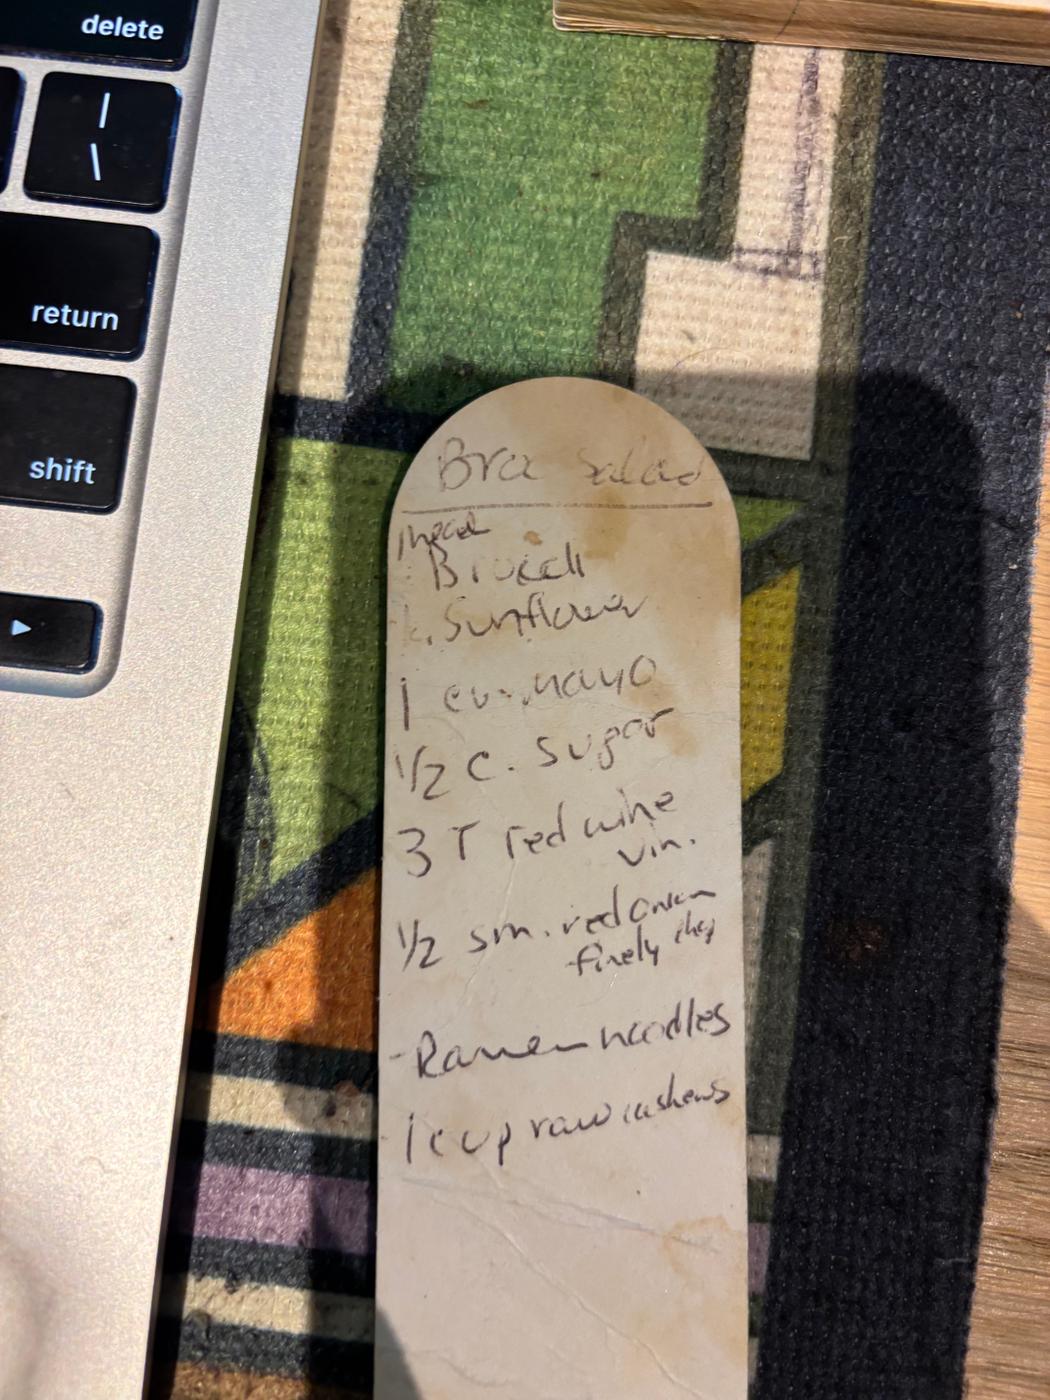 delete
|
\
return
shift
Bro Salad
1 head
Broccoli
c. Sunflower
1 cu. mayo
1/2 c. sugar
3 T red wine
vin.
1/2 sm. red onion
finely chop
- Ramen noodles
1 cup raw cashews